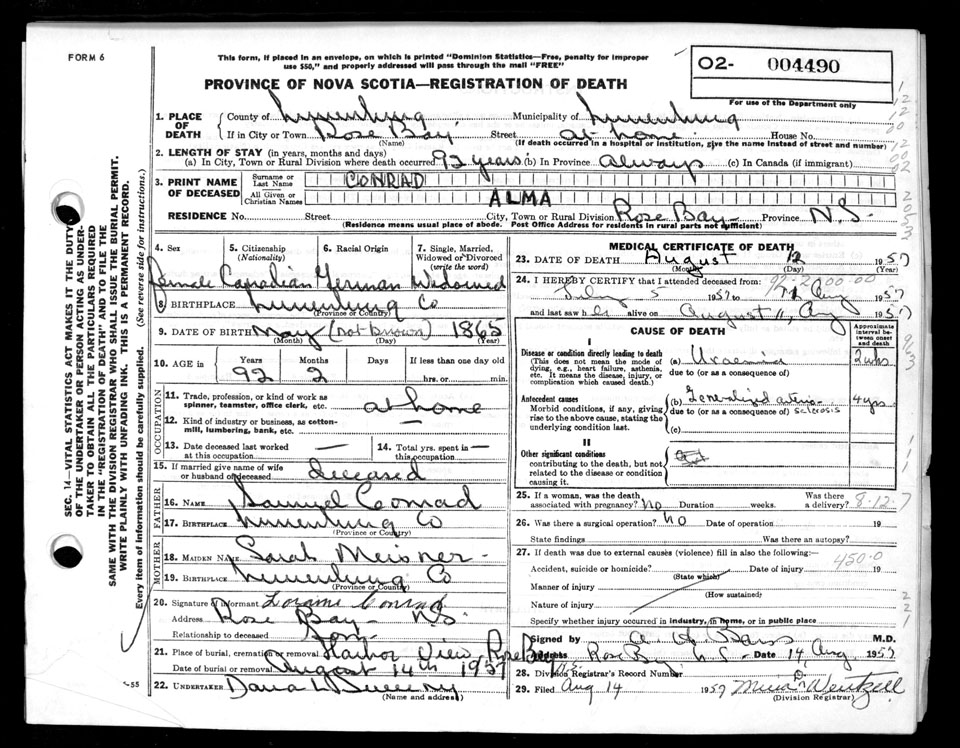 FORM 6
This form, if placed in an envelope, on which is printed "Dominion Statistics—Free, penalty for improper
use $50," and properly addressed will pass through the mail "FREE"
02- 004490
For use of the Department only
PROVINCE OF NOVA SCOTIA—REGISTRATION OF DEATH
1. PLACE OF DEATH County of Lunenburg Municipality of Lunenburg
If in City or Town Rose Bay Street at home House No.
(Name) (If death occurred in a hospital or institution, give the name instead of street and number)
2. LENGTH OF STAY (in years, months and days)
(a) In City, Town or Rural Division where death occurred 92 years (b) in Province always (c) In Canada (if immigrant)
3. PRINT NAME OF DECEASED Surname or Last Name CONRAD
All Given or Christian Names ALMA
RESIDENCE No. Street City, Town or Rural Division Rose Bay Province N.S.
(Residence means usual place of abode. Post Office Address for residents in rural parts not sufficient)
4. Sex 5. Citizenship (Nationality) 6. Racial Origin 7. Single, Married, Widowed or Divorced (write the word)
Female Canadian German Widowed
8. BIRTHPLACE Lunenburg Co
(Province or Country)
9. DATE OF BIRTH May (not known) 1865
(Month) (Day) (Year)
10. AGE in Years Months Days If less than one day old
92 2 hrs. or min.
OCCUPATION
11. Trade, profession, or kind of work as spinner, teamster, office clerk, etc. at home
12. Kind of industry or business, as cotton-mill, lumbering, bank, etc. —
13. Date deceased last worked at this occupation — 14. Total yrs. spent in this occupation —
15. If married give name of wife or husband of deceased deceased
FATHER
16. NAME Samuel Conrad
17. BIRTHPLACE Lunenburg Co
MOTHER
18. MAIDEN NAME Sarah Meisner
19. BIRTHPLACE Lunenburg Co
(Province or Country)
20. Signature of informant Conrad
Address Rose Bay N.S.
Relationship to deceased Son
21. Place of burial, cremation or removal Harbor View, Rose Bay
Date of burial or removal August 14th 1957
22. UNDERTAKER Dana L Sweeny
(Name and address)
MEDICAL CERTIFICATE OF DEATH
23. DATE OF DEATH August 12 1957
(Month) (Day) (Year)
24. I HEREBY CERTIFY that I attended deceased from:
July 5 1957 to 11 Aug 1957
and last saw her alive on August 11, Aug 1957
CAUSE OF DEATH
Approximate interval between onset and death
I
Disease or condition directly leading to death (a) Uraemia 2 wks
(This does not mean the mode of dying, e.g., heart failure, asthenia, etc. It means the disease, injury, or complication which caused death.)
due to (or as a consequence of)
Antecedent causes (b) Generalized arterio 4 yrs.
Morbid conditions, if any, giving rise to the above cause, stating the underlying condition last.
due to (or as a consequence of) sclerosis
(c)
II
Other significant conditions
contributing to the death, but not related to the disease or condition causing it.
25. If a woman, was the death associated with pregnancy? no Duration weeks. Was there a delivery? 8-12-7
26. Was there a surgical operation? NO Date of operation 19
State findings Was there an autopsy?
27. If death was due to external causes (violence) fill in also the following:— 450-0
Accident, suicide or homicide? Date of injury 19
(State which)
Manner of injury
(How sustained)
Nature of injury
Specify whether injury occurred in industry, in home, or in public place
Signed by M.D.
Address Rose Bay N.S. Date 14 Aug 1957
28. Division Registrar's Record Number
29. Filed Aug 14 1957 Wentzell
(Division Registrar)
SEC. 14—VITAL STATISTICS ACT MAKES IT THE DUTY
OF THE UNDERTAKER OR PERSON ACTING AS UNDER-
TAKER TO OBTAIN ALL THE PARTICULARS REQUIRED
IN THE "REGISTRATION OF DEATH" AND TO FILE THE
SAME WITH THE DIVISION REGISTRAR WHO SHALL ISSUE THE BURIAL PERMIT.
WRITE PLAINLY WITH UNFADING INK. THIS IS A PERMANENT RECORD.
Every item of information should be carefully supplied. (See reverse side for instructions.)